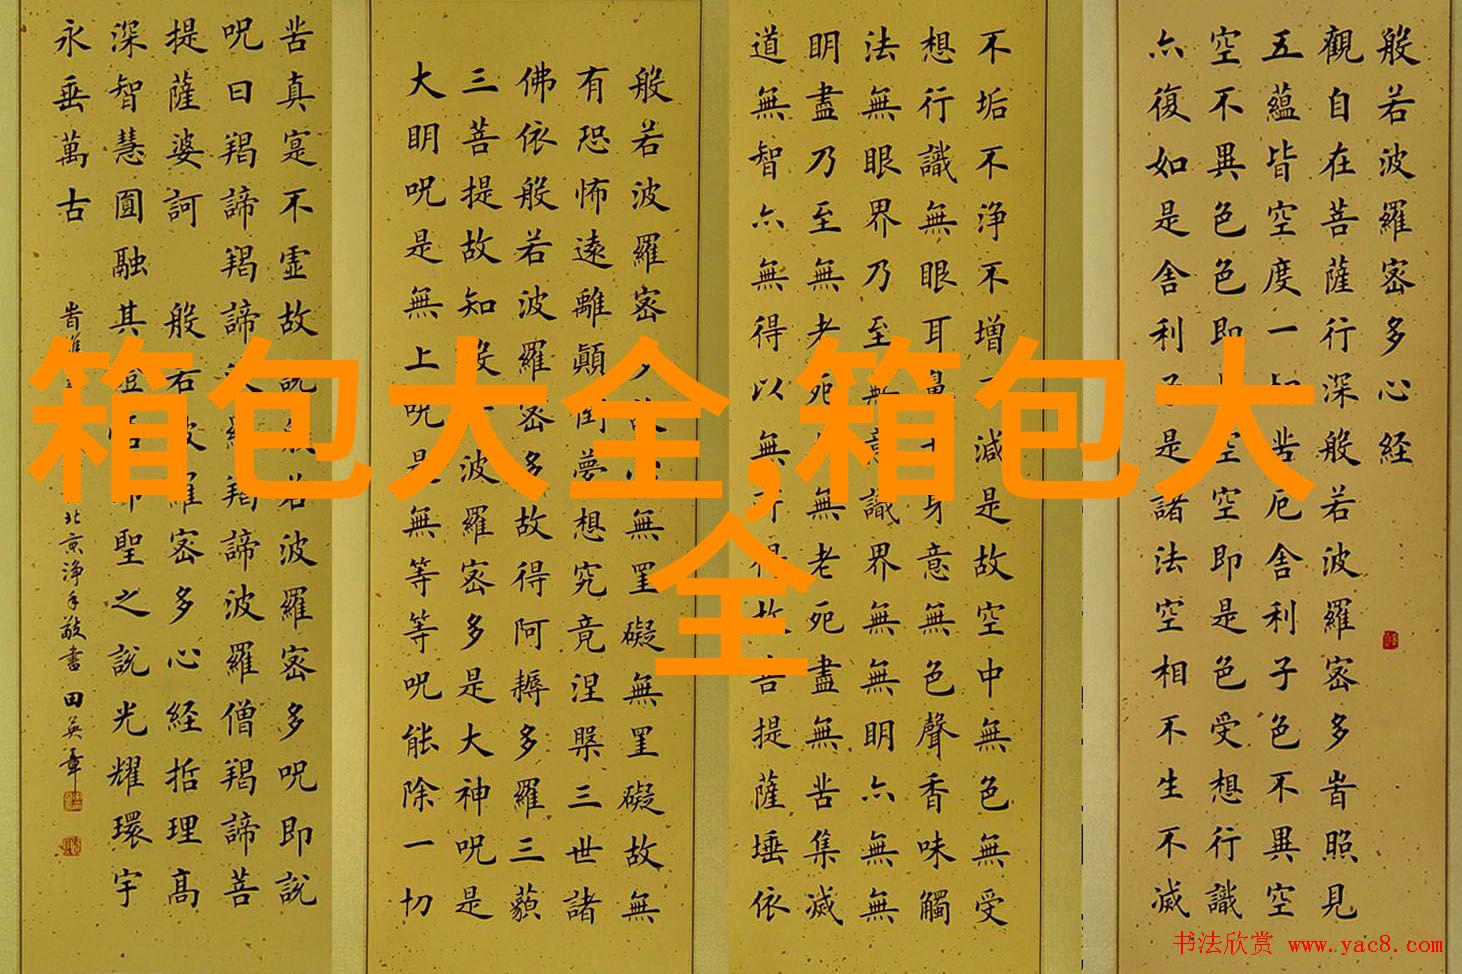 般若波羅密多心经
觀自在菩薩行深般若波羅密多旹照見
五蘊皆空度一切苦厄舍利子色不異空
空不異色色即是空空即是色受想行識
亦復如是舍利子是諸法空相不生不滅
不垢不浄不增不減是故空中無色無受
想行識無眼耳鼻舌身意無色聲香味觸
法無眼界乃至無意識界無無明亦無無
明盡乃至無老死亦無老死盡無苦集滅
道無智亦無得以無所得故菩提薩埵依
般若波羅密多故心無罣礙無罣礙故無
有恐怖遠離顛倒夢想究竟涅槃三世諸
佛依般若波羅密多故得阿耨多羅三藐
三菩提故知般若波羅密多是大神呪是
大明呪是無上呪是無等等呪能除一切
苦真寔不虚故說般若波羅密多呪即說
呪曰羯諦羯諦波羅羯諦波羅僧羯諦菩
提薩婆訶 般若波羅密多心经括理高
深智慧圓融其 聖之說光耀環宇
永垂萬古
北京浄手敬書 田英章
箱包大全,箱包大
全
书法欣赏 www.yac8.com